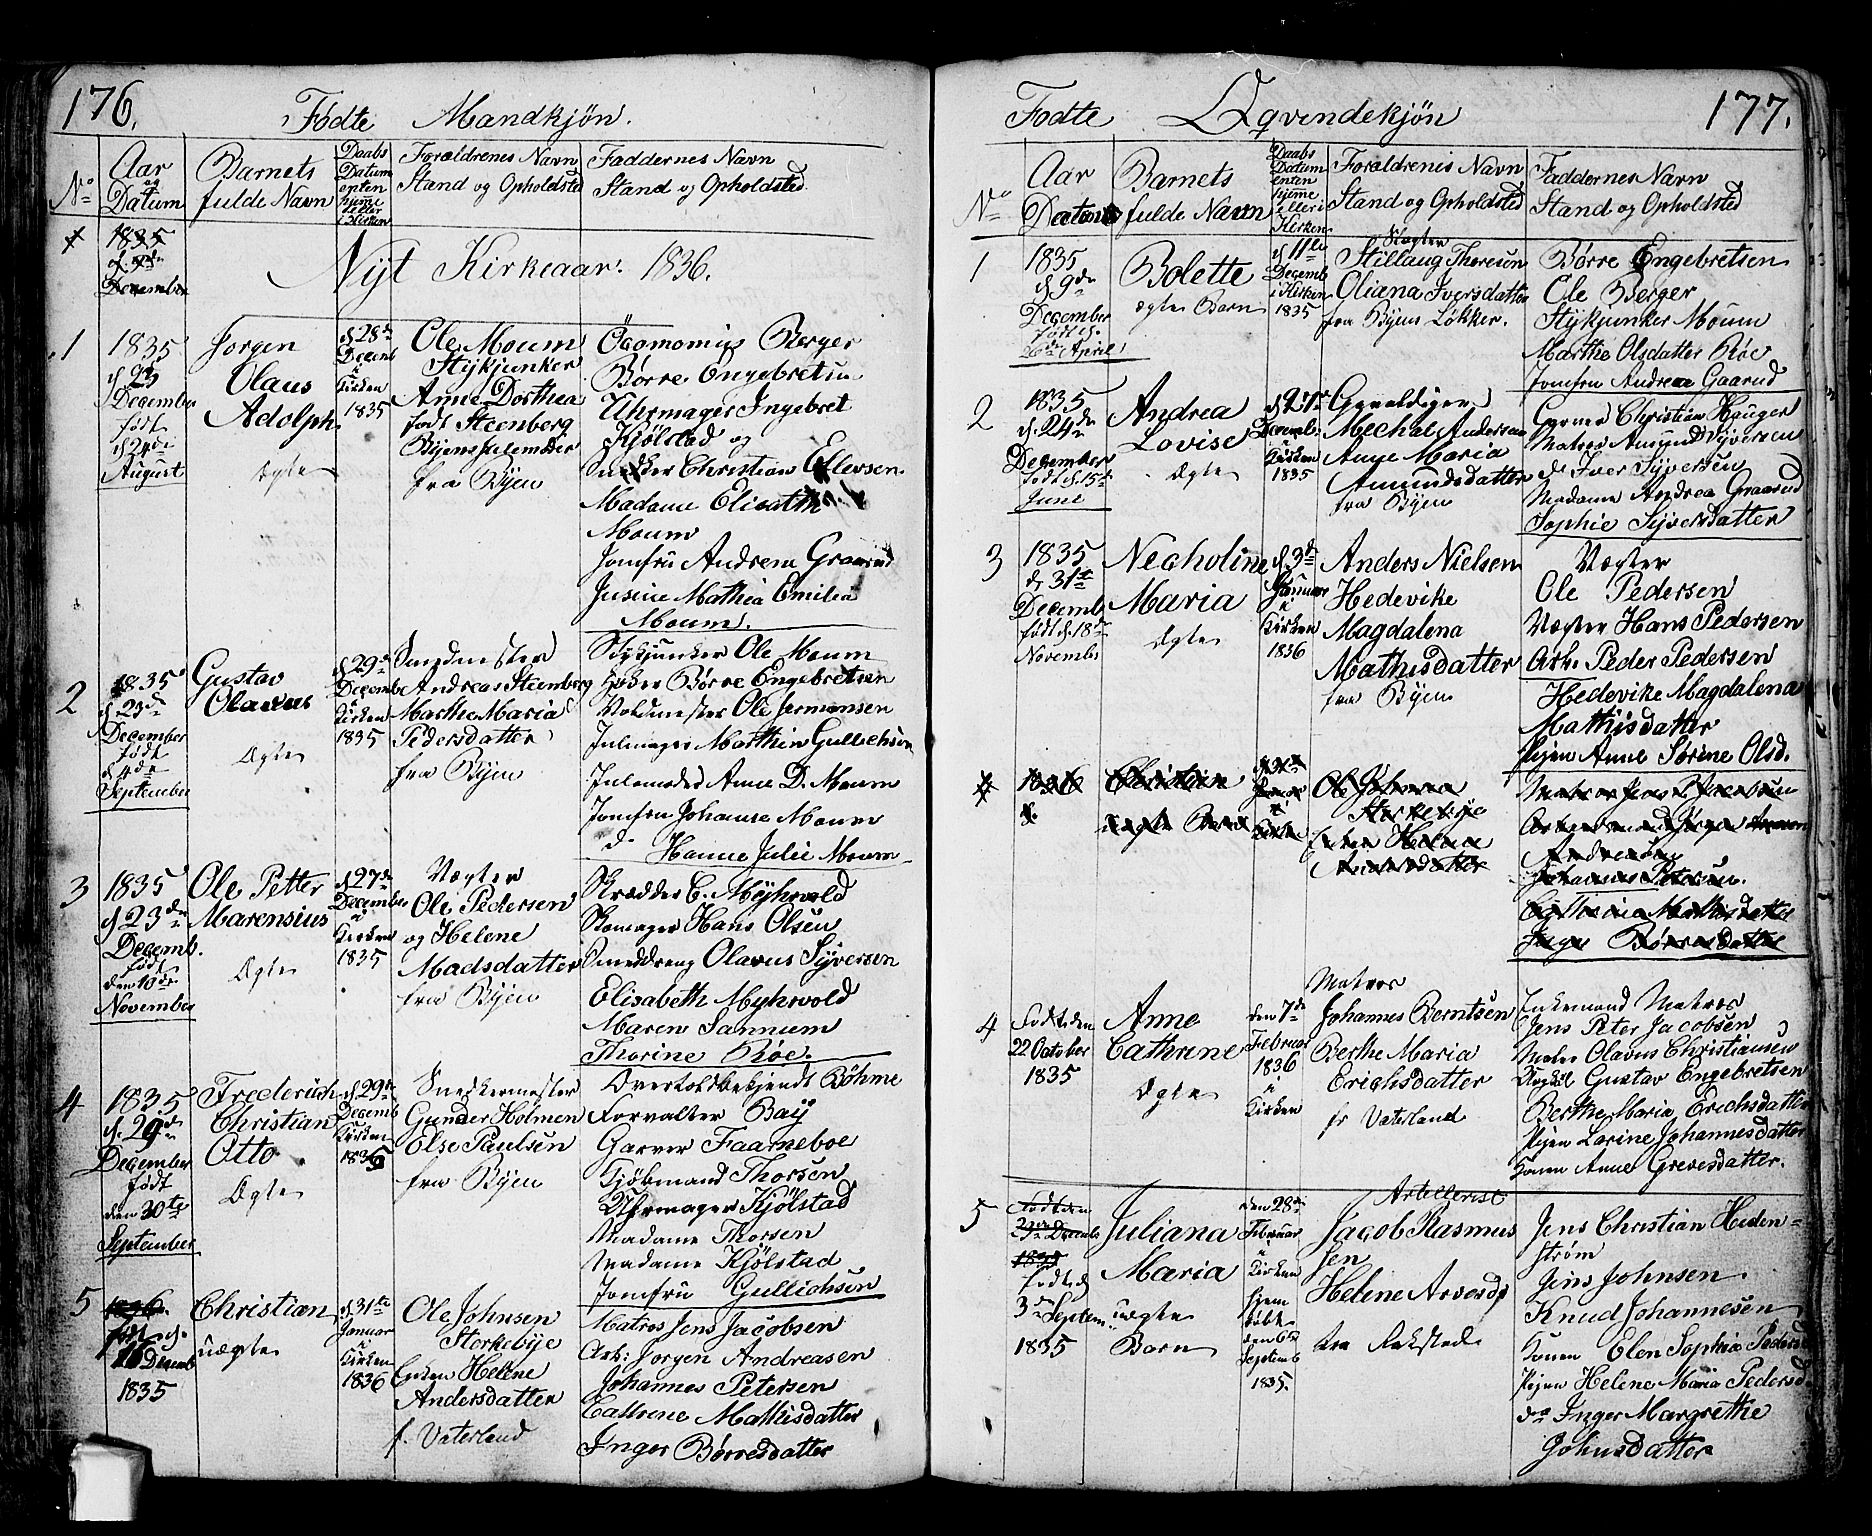 176.
Fødte Mandkjøn.
No
Aar og Datum
Barnets fulde Navn
Daabs Datum enten hjeme eller i Kirken
Forældrenes Navn Stand og Opholdsted
Faddernes Navn Stand og Opholdsted
1835
December
Nyt Kirkeaar. 1836.
1
1835
d 23
December
født
d 24de
August
Jørgen
Olaus
Adolph.
Ægte
d 28de
Decemb
i
Kirken
1835
Ole Moum
Stykjunker
Anne Dorthea
født Steenberg
Byens Julemoder
fra Byen
Öconomius Berger
Børre Engebretsen
Uhrmager Ingebret
Kjølstad og
Snedker Christian Ellevsen
Madame Elisabth
Moum
Jomfru Andrea Graarud
Jusine Mathea Emilea
Moum.
2
1835
d 23de
December
født
d 4de
September
Gustav
Olavus
Ægte
d 29de
Decemb
i
Kirken
1835
Smedmester
Andreas Steenberg
Marthe Maria
Pedersdatter
fra Byen
Stykjunker Ole Moum
Børre Engebretsen
Ole Jermansen
Marthin Gullichsen
Julemoder Anne D. Moum
Jomfru Johanne Moum
do Hanne Julie Moum
3
1835
d 23de
Decemb.
født
den 10de
November
Ole Petter
Marensius
Ægte
d 27de
December
i
Kirken
1835
Vægter
Ole Pedersen
og Helene
Madsdatter
fra Byen
Skrædder C. Myhrvold
Skomager Hans Olsen
Smeddreng Olavus Syversen
Elisabeth Myhrvold
Maren Sannum
Thorine Röe.
4
1835
d. 29de
December
født
den 30te
September
Frederich
Christian
Otto
Ægte
d 29de
Decemb
i
Kirken
1835
Snedkermester
Gunder Holmen
Else Paulsen
fra Byen
Overtoldbetjendt Böhme
Forvalter Baÿ
Garver Faarneboe
Kjöbmand Thorsen
Uhrmager Kjölstad
Madame Thorsen
Madame Kjölstad
Jomfru Gullichsen
5
1836.
født d.
Decemb
1835
Christian
uægte
d 31te
Januar
i
Kirken
1836
Ole Johnsen
Storkebÿe
Enken Helene
Andersdatter
f. Vaterland
Matros Jens Jacobsen
Arb: Jorgen Andreasen
Johannes Petersen
Cathrene Mathisdatter
Inger Børresdatter
177.
Fødte Qqvindekjøn
No
Aar
Datum
Barnets
fulde Navn
Daabs Datum enten hjeme eller i Kirken
Forældrenis Navn
Stand og Opholdsted
Faddernes Navn
Stand og Opholdsted
1
1835
d 9de
December
født d.
April
Bolette
ægte Barn
d 11te
Decemb
i Kirken
1835
Slagter
Stillaug Thoresen
Oliana Iversdatter
fra Byens Løkker.
Børre Engebretsen
Ole Berger
Stykjunker Moum
Marthe Olsdatter Röe
Jomfru Andrea Gaarud
2
1835
d. 24de
December
født d. 15de
June
Andrea
Lovise
Ægte
d 21de
Decemb.
i
Kirken
1835
Gevaldiger
Mechal Andersen
Anne Maria
Amundsdatter
fra Byen
Christian Hauger
Matros Amund Syversen
do Iver Syversen
Madame Andrea Graarud
Sophie Syversdatter
3
1835
d 31te
Decemb
født d. 18de
November
Necholine
Maria
Ægte
d. 3de
Januar
i
Kirken
1836
Anders Nielsen
Hedevike
Magdalena
Mathisdatter
fra Byen
Vægter
Ole Pedersen
Vægter Hans Pedersen
Arb. Peder Pedersen
Hedevike Magdalena
Mathisdatter
Pigen Anne Sørine Olsd.
1836
d.
Christian
uægte Barn
Kirken
Ole Johnsen
Storkebÿe
Enken Helene
Andersdatter
Matros Jens Jacobsen
Jørgen
Andreasen
Johannes Petersen.
Cathrine Mathisdatter
Inger Børresdatter
4
Født den
22 October
1835
Anne
Cathrine
Ægte
den 7de
Februar
1836
i
Kirken
Matros
Johannes Berntsen
Berthe Maria
Erichsdatter
fr Vaterland
Matros
Jens Peter Jacobsen
Matros Olavus Christiansen
Gustav Engebretsen
Berthe Maria Erichsdatter
Pigen Larine Johannesdatter
Konen Anne Grevesdatter.
5
Født den
29de Decemb
1835
født d
3de Septem
1835
Juliana
Maria
uægte
Barn
den 28de
Februar
i
Kirken
hjem
døbt
den 6te
Septemb
1835.
Artillerist
Jacob Rasmus
sen
Helene Arvesd
fra Rakstad
Jens Christian Heden=
strøm
Jens Johnsen
Knud Johannesen
Konen Elen Sophia Pedersd
Pigen Helene Maria Pedersd
do Inger Margrethe
Johnsdatter